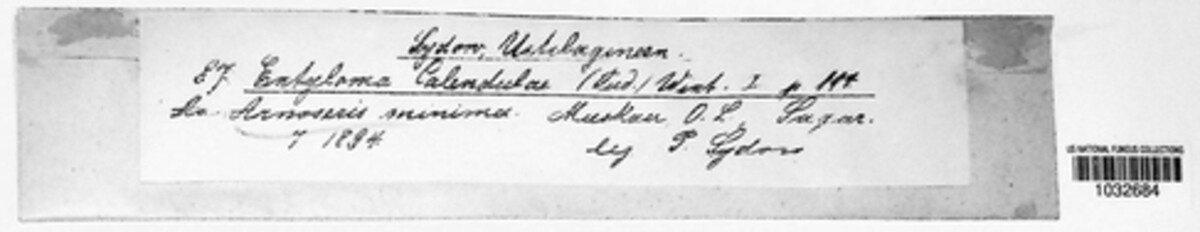 Sydow, Ustilagineen.
87. Entyloma Calendulae (Oud.) Wint. I p 114
An Arnoseris minima. Muskau, O. L. Sagar.
7 1894
leg P. Sydow
US NATIONAL FUNGUS COLLECTIONS
1032684